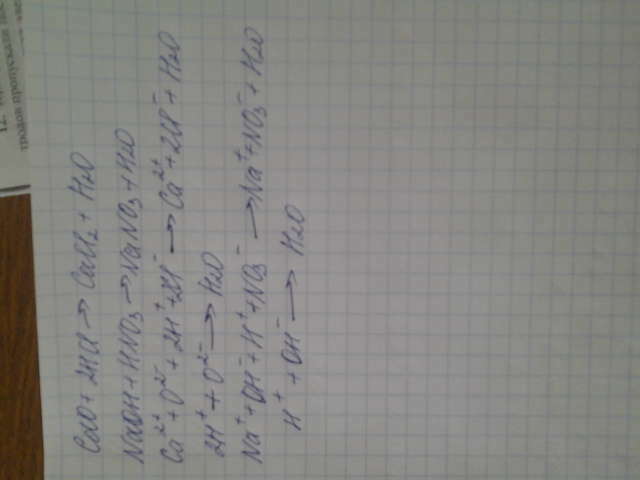 CaO + 2HCl → CaCl₂ + H₂O
NaOH + HNO₃ → NaNO₃ + H₂O
Ca²⁺ + O²⁻ + 2H⁺ + 2Cl⁻ → Ca²⁺ + 2Cl⁻ + H₂O
2H⁺ + O²⁻ → H₂O
Na⁺ + OH⁻ + H⁺ + NO₃⁻ → Na⁺ + NO₃⁻ + H₂O
H⁺ + OH⁻ → H₂O
12.
тродов пропускали